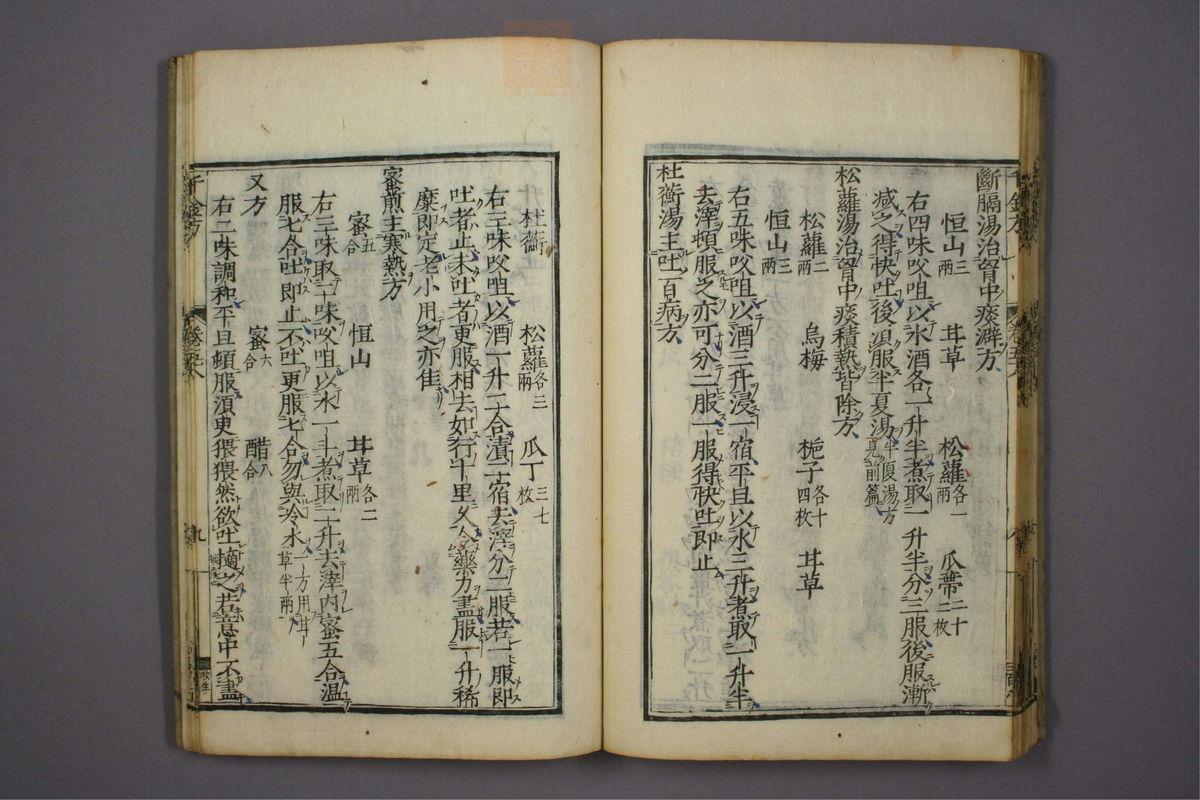 斷膈湯治胷中痰澼方
恒山三兩 耳草 松蘿各一兩 瓜蔕二十二枚
右四味㕮咀以水酒各一升半煮取一升半分三服後服漸
减之得快吐後須服半夏湯半夏湯方見前篇
松蘿湯治胷中痰積熱皆除方
松蘿二兩 烏梅 梔子各十四枚 耳草
恒山三兩
右五味㕮咀以酒三升浸一宿平旦以水三升者取一升半
去滓頓服之亦可分二服一服得快吐即止
杜蘅湯主吐百病方
杜蘅 松蘿各三兩 瓜丁三七枚
右三味㕮咀以酒一升二合漬二宿去滓分二服若一服即
吐者止未吐者更服相去如行十里久令藥力盡服一升稀
糜即定老小用之亦佳
蜜煎主寒熱方
蜜五合 恒山 耳草各二兩
右三味取二味㕮咀以水一斗煮取二升去滓内蜜五合温
服七合吐即止不吐更服七合勿與冷水一方用耳草半兩
又方
蜜六合 醋八合
右二味調和平旦頓服須㬰猥猥然欲吐擿之若意中不盡
千金方
九